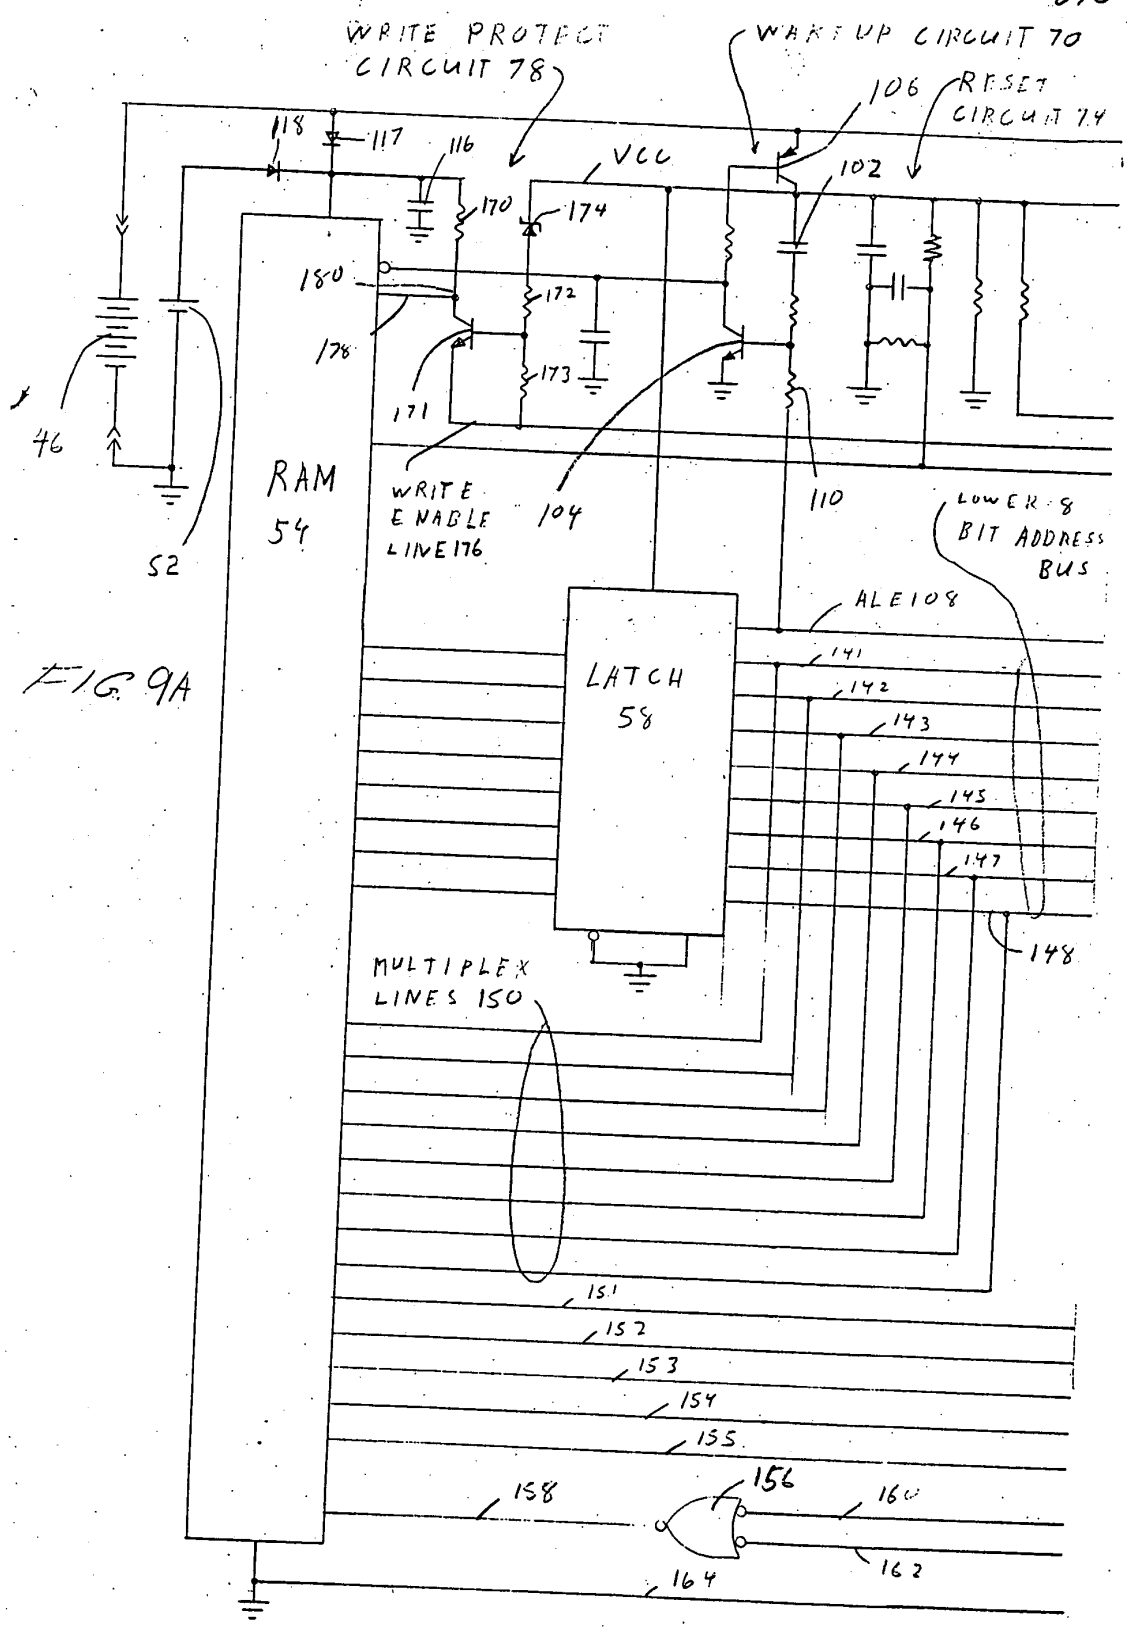 WRITE PROTECT
CIRCUIT 78
WAKEUP CIRCUIT 70
106
RESET
CIRCUIT 74
118
117
116
VCC
102
170
174
180
172
178
173
171
46
RAM
54
WRITE
ENABLE
LINE 176
104
110
LOWER 8
BIT ADDRESS
BUS
52
ALE 108
FIG. 9A
LATCH
58
141
142
143
144
145
146
147
148
MULTIPLEX
LINES 150
151
152
153
154
155
156
158
160
162
164